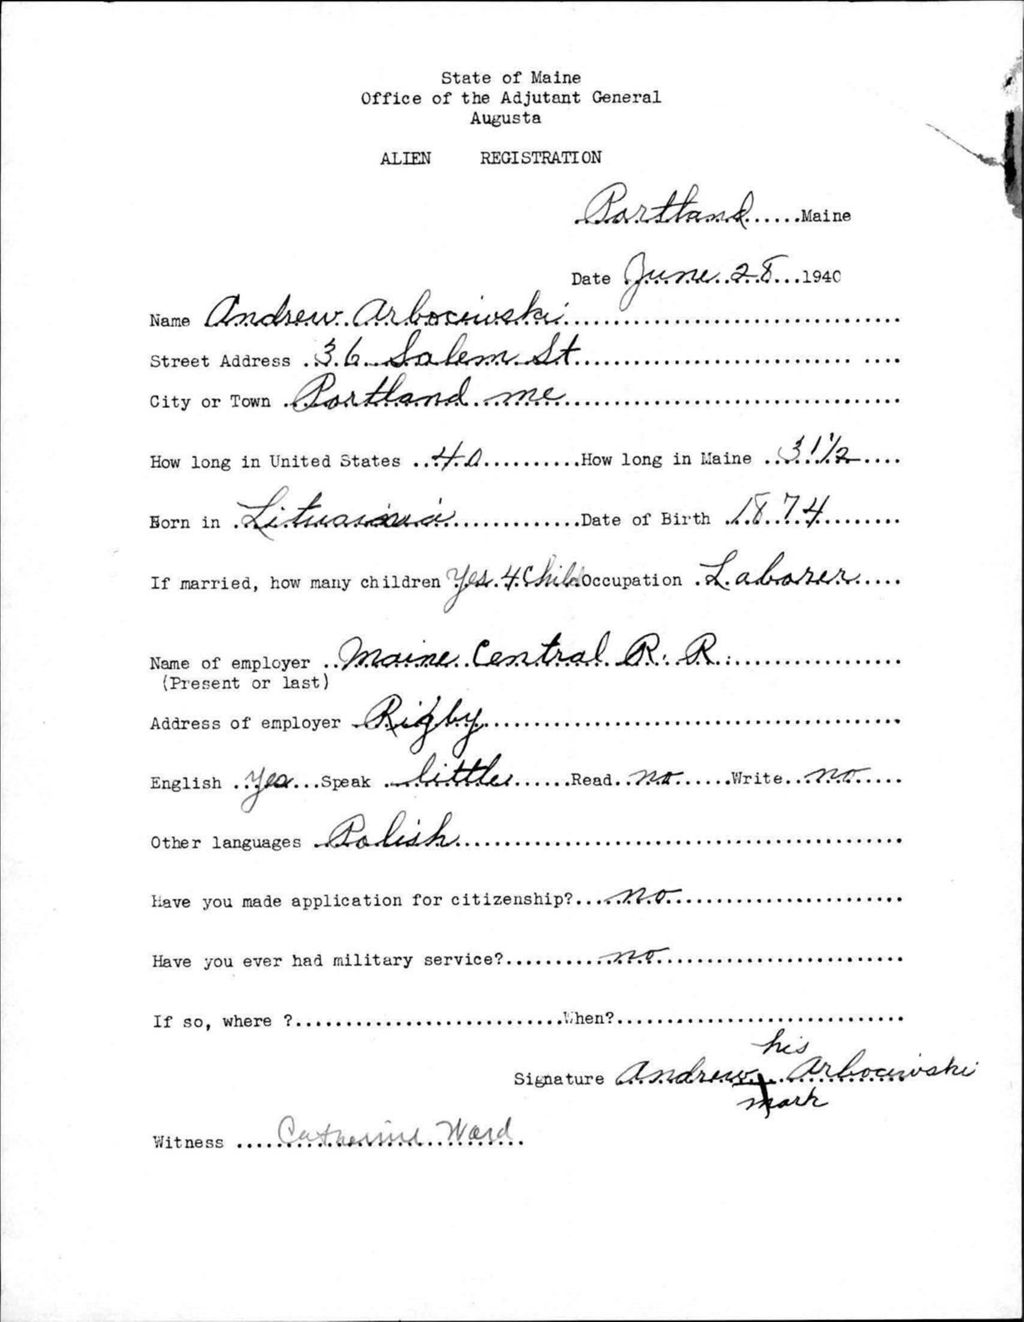 State of Maine
Office of the Adjutant General
Augusta
ALIEN REGISTRATION
Portland......Maine
Date June 28...1940
Name Andrew Arbociwski
Street Address 36 Salem St
City or Town Portland me
How long in United States 40 How long in Maine 31 1/2
Born in Lituaania Date of Birth 1874
If married, how many children Yes 4 Child Occupation Laborer
Name of employer Maine Central R. R.
(Present or last)
Address of employer Rigby
English Yes Speak little Read no Write no
Other languages Polish
Have you made application for citizenship? no
Have you ever had military service? no
If so, where ? When?
his
Signature Andrew x Arbociwski
mark
Witness Catherine Ward